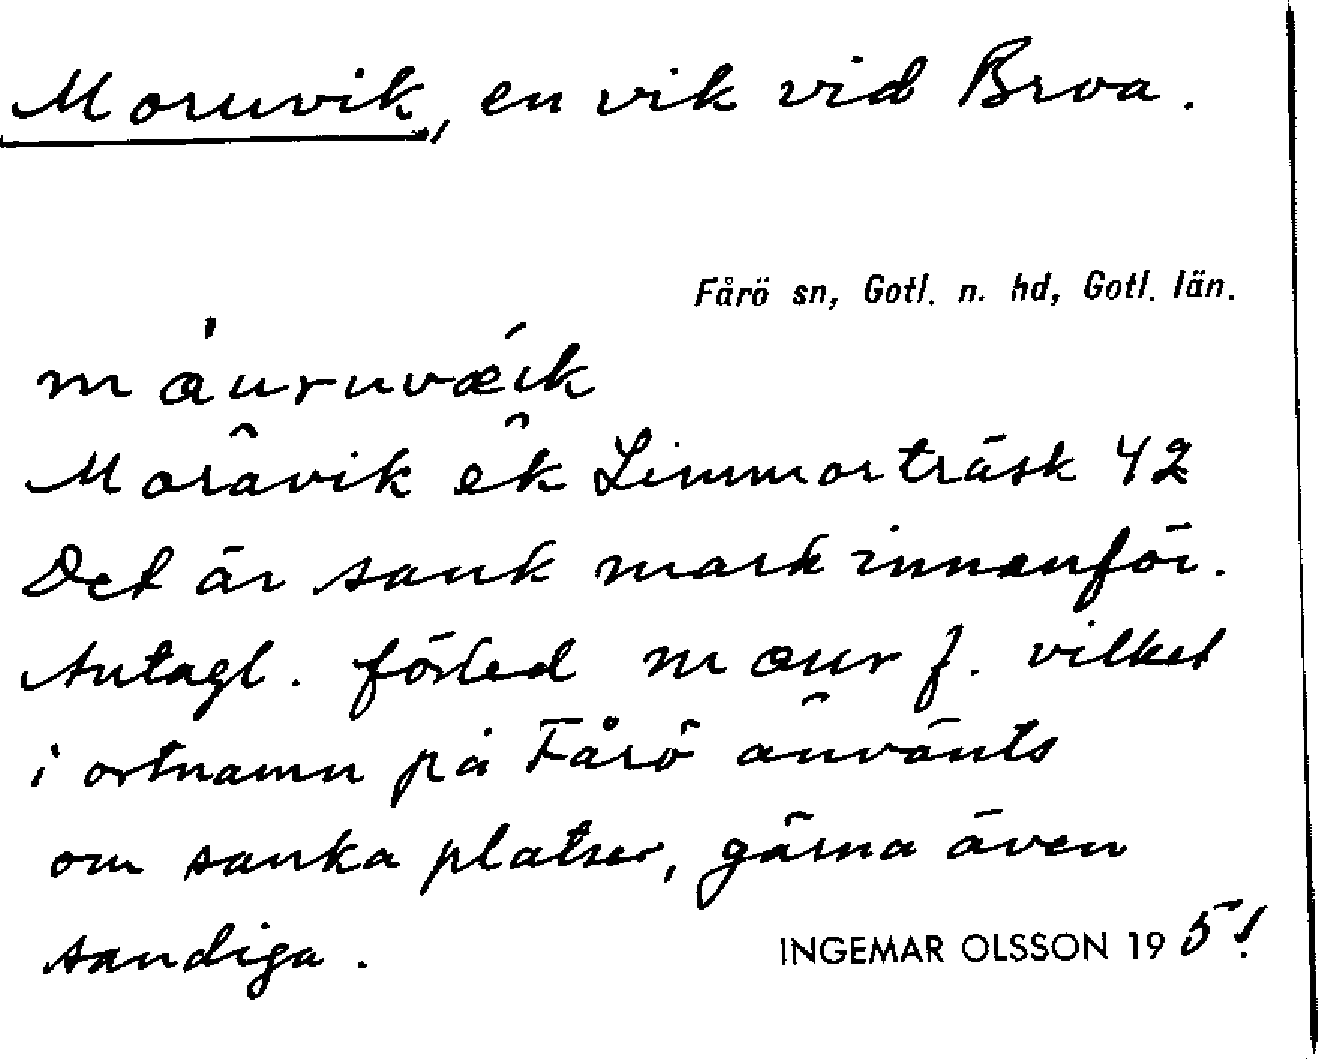 Moruvik, en vik vid Broa.
Fårö sn, Gotl. n. hd, Gotl. län.
måuruvæik
Morâvik êk Limmorträsk 42
Det är sank mark innanför.
Antagl. förled mɑur f. vilket
i ortnamn på Fårö använts
om sanka platser, gärna även
sandiga.
INGEMAR OLSSON 19